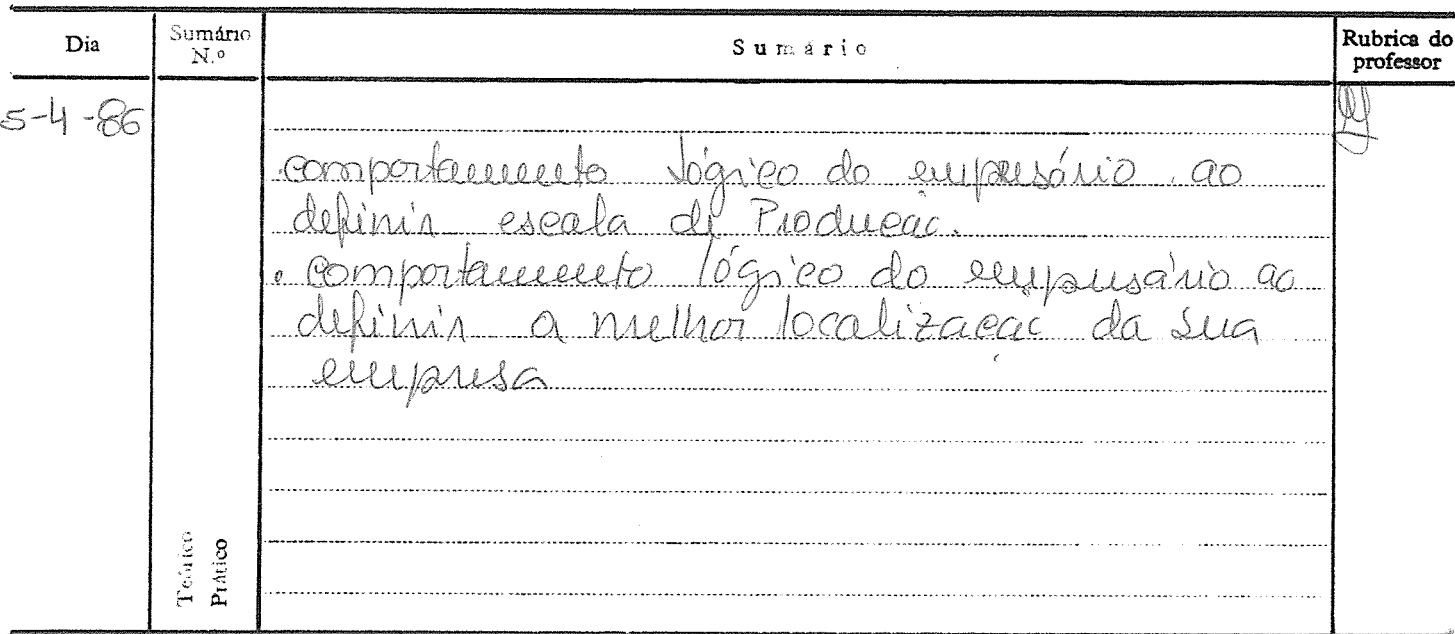 Dia
Sumário N.º
Sumário
Rubrica do professor
5-4-86
. comportamento lógico do empresário ao
definir escala de Produção.
. comportamento lógico do empresário ao
definir a melhor localização da sua
empresa
Teórico
Prático